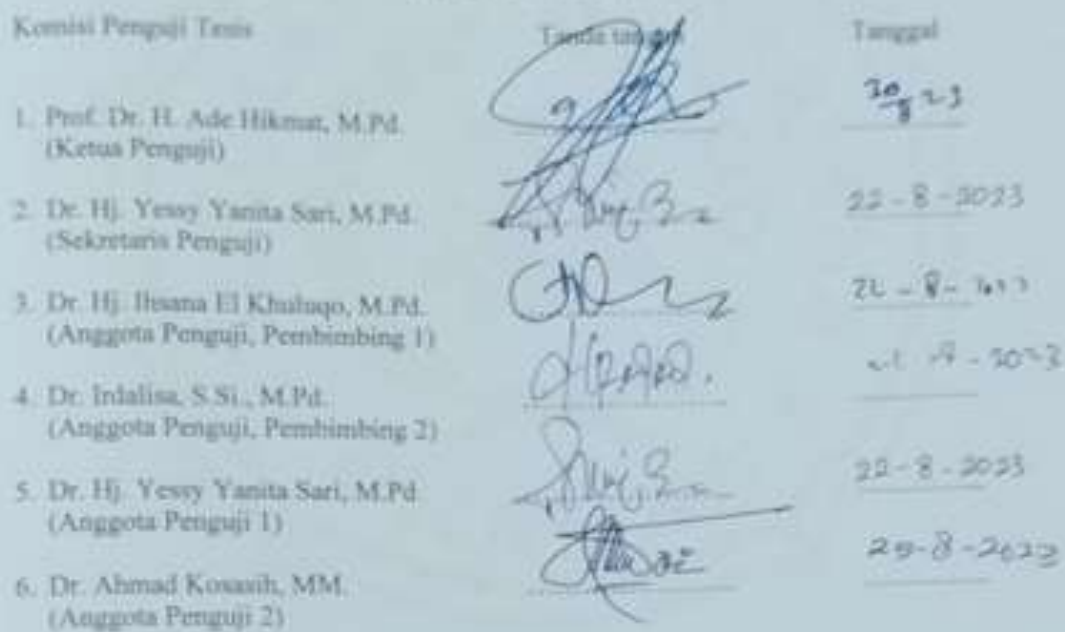 Komisi Penguji Tesis Tanda tangan Tanggal
1. Prof. Dr. H. Ade Hikmat, M.Pd.
(Ketua Penguji)
2. Dr. Hj. Yessy Yanita Sari, M.Pd. 22-8-2023
(Sekretaris Penguji)
3. Dr. Hj. Ihsana El Khuluqo, M.Pd.
(Anggota Penguji, Pembimbing 1)
4. Dr. Irdalisa, S.Si., M.Pd.
(Anggota Penguji, Pembimbing 2)
5. Dr. Hj. Yessy Yanita Sari, M.Pd. 22-8-2023
(Anggota Penguji 1)
6. Dr. Ahmad Kosasih, MM.
(Anggota Penguji 2)